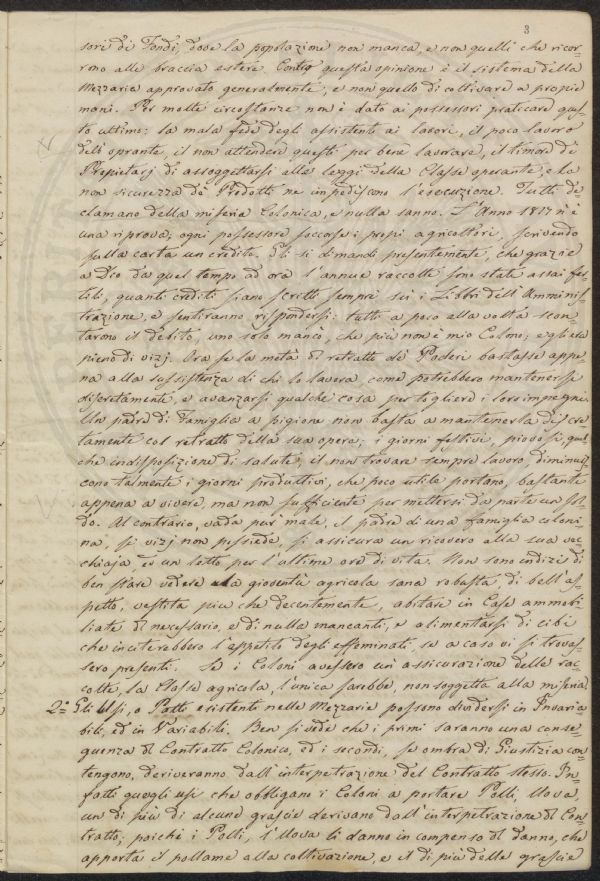 3
sori di Fondi, dove la popolazione non manca, e non quelli che ricor-
rono alle braccia estere. Contro questa opinione è il sistema della
Mezzaria approvato generalmente, e non quello di coltivare a propie
mani. Per molte circostanze non è dato ai possessori praticare ques-
to ultimo: la mala fede degli assistenti ai lavori, il poco lavoro
dell'oprante, il non attendere questi per bene lavorare, il timore de
Propietarj di assoggettarsi alle leggi della Classe operante, e la
non sicurezza de Prodotti ne inpediscono l'esecuzione. Tutti de-
clamano della miseria Colonica, e nulla sanno. L'Anno 1817 n'è
una riprova; ogni possessore soccorse i propi agricoltori, scrivendo
sulla carta un credito. Gli si dimandi presentemente, che grazie
a Dio da quel tempo ad ora l'annue raccolte sono state assai fer-
tili, quanti crediti siano scritti sempre sui i Libbri dell'Amminis-
trazione, e sentiranno rispondersi: tutti a poco alla volta scon-
tarono il debito, uno solo mancò, che più non è mio Colono; egli era
pieno di vizj. Ora se la metà dl retratto de Poderi bastasse appe-
na alla sussistenza di chi lo lavora, come potrebbero mantenersi
discretamente, e avanzarsi qualche cosa per togliere i loro impegni.
Un padre di Famiglia a pigione non basta a mantenerla discre-
tamente col retratto della sua opera; i giorni festivi, piovosi, qual-
che indisposizione di salute, il non trovare sempre lavoro, diminuis-
cono talmente i giorni produttivi, che poco utile portano, bastante
appena a vivere, ma non sufficiente per mettersi da parte un sol-
do. Al contrario, vada pur male, il padre di una famiglia coloni-
na, se vizj non possiede, si assicura un ricovero alla sua vec-
chiaja, ed un letto per l'ultime ore di vita. Non sono indizi di
ben stare vedere la gioventù agricola sana robusta, di bell'as-
petto, vestita più che decentemente, abitare in Case ammobi-
liate dl necessario, e di nulla mancanti, e alimentarsi di cibi
che inciterebbero l'appetito degli effeminati, se a caso vi si trovas-
sero presenti. Se i Coloni avessero un'assicurazione delle rac-
colte, la Classe agricola, l'unica sarebbe, non soggetta alla miseria
2.° Gli Usi, o Patti esistenti nelle Mezzarie possono dividersi in Invaria-
bili, ed in Variabili. Ben si vede che i primi saranno una conse-
guenza dl Contratto Colonico, ed i secondi, se ombra di Giustizia con-
tengono, deriveranno dall'interpetrazione del Contratto stesso. In-
fatti quegli usi che obbligano i Coloni a portare Polli, Uova,
un di più di alcune grascie derivano dall'interpetrazione dl Con-
tratto; poichè i Polli, l'Uova li danno in compenso dl danno, che
apporta il pollame alla coltivazione, e il di più delle grascie